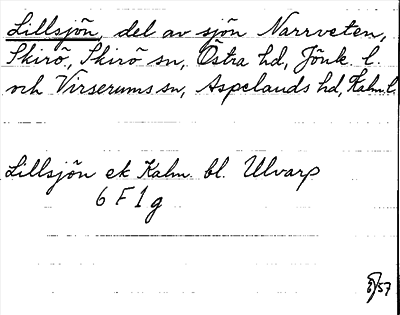 Lillsjön, del av sjön Narrveten,
Skirö, Skirö sn, Östra hd, Jönk. l.
och Virserums sn, Aspelands hd, Kalm. l.
Lillsjön ek Kalm. bl. Ulvarp
6 F 1 g
/57